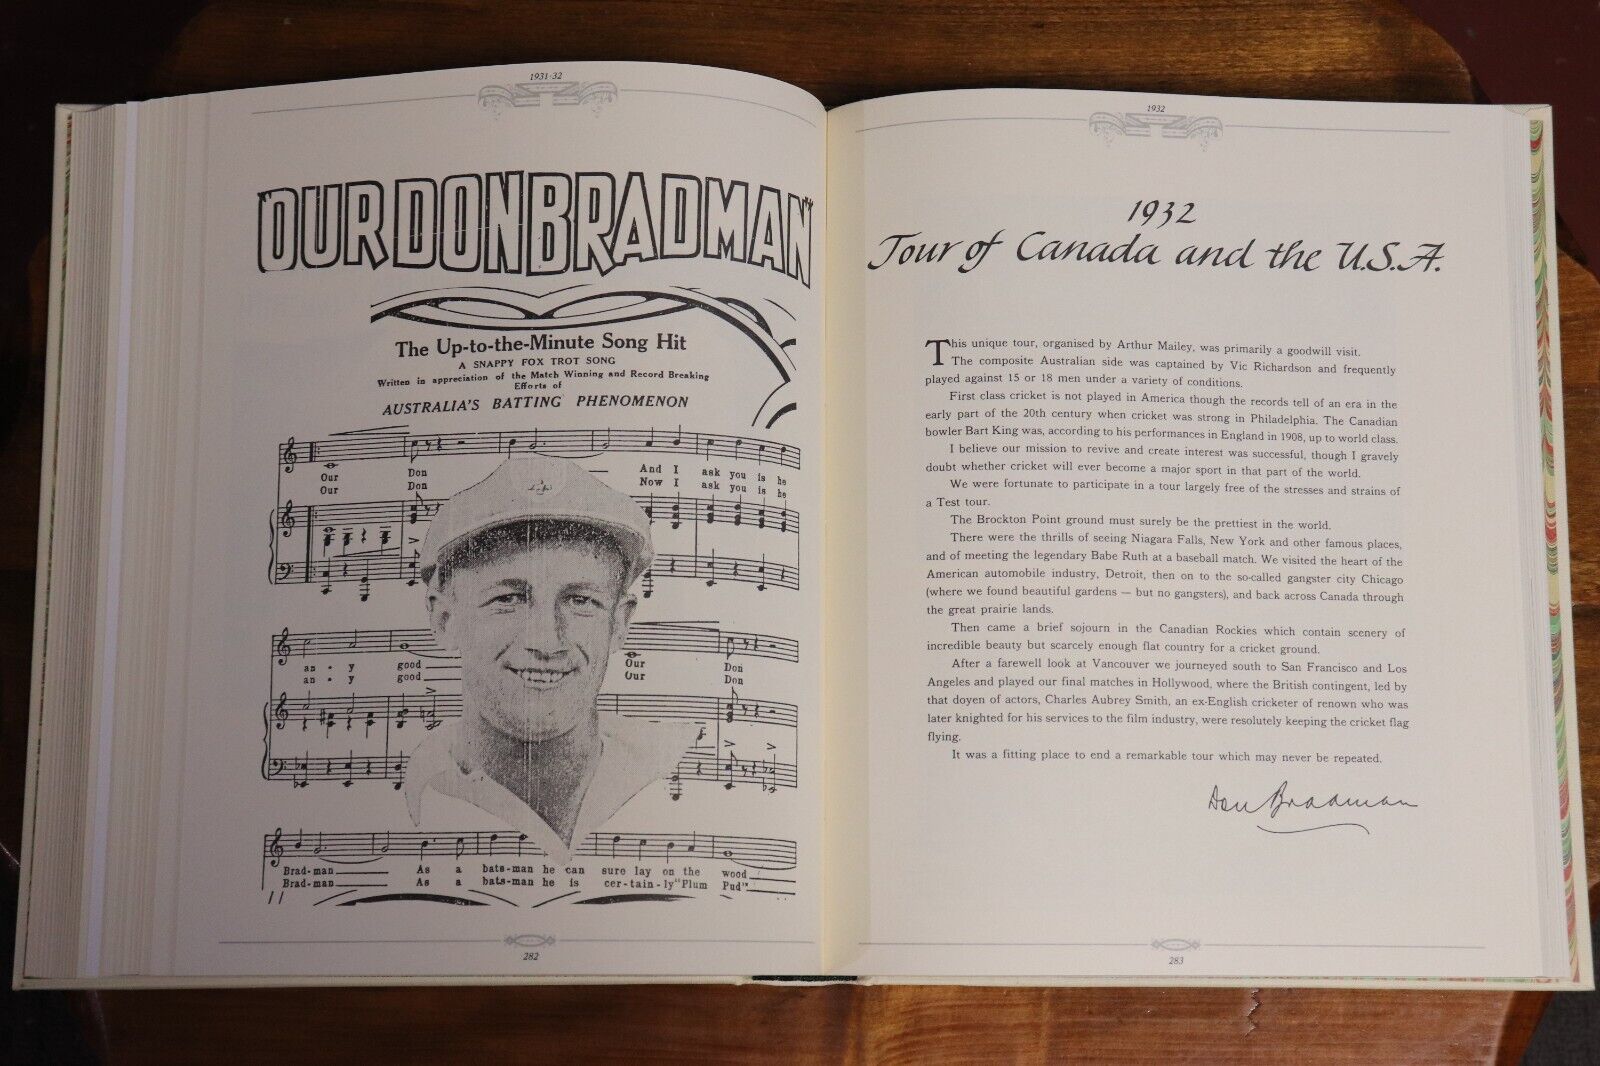 1931-32
OUR DON BRADMAN
The Up-to-the-Minute Song Hit
A SNAPPY FOX TROT SONG
Written in appreciation of the Match Winning and Record Breaking
Efforts of
AUSTRALIA'S BATTING PHENOMENON
Our Don And I ask you is he
Our Don Now I ask you is he
an - y good Our Don
an - y good Our Don
Brad-man As a bats-man he can sure lay on the wood
Brad-man As a bats-man he is cer-tain-ly "Plum Pud"
282
1932
1932
Tour of Canada and the U.S.A.
This unique tour, organised by Arthur Mailey, was primarily a goodwill visit.
The composite Australian side was captained by Vic Richardson and frequently
played against 15 or 18 men under a variety of conditions.
First class cricket is not played in America though the records tell of an era in the
early part of the 20th century when cricket was strong in Philadelphia. The Canadian
bowler Bart King was, according to his performances in England in 1908, up to world class.
I believe our mission to revive and create interest was successful, though I gravely
doubt whether cricket will ever become a major sport in that part of the world.
We were fortunate to participate in a tour largely free of the stresses and strains of
a Test tour.
The Brockton Point ground must surely be the prettiest in the world.
There were the thrills of seeing Niagara Falls, New York and other famous places,
and of meeting the legendary Babe Ruth at a baseball match. We visited the heart of the
American automobile industry, Detroit, then on to the so-called gangster city Chicago
(where we found beautiful gardens — but no gangsters), and back across Canada through
the great prairie lands.
Then came a brief sojourn in the Canadian Rockies which contain scenery of
incredible beauty but scarcely enough flat country for a cricket ground.
After a farewell look at Vancouver we journeyed south to San Francisco and Los
Angeles and played our final matches in Hollywood, where the British contingent, led by
that doyen of actors, Charles Aubrey Smith, an ex-English cricketer of renown who was
later knighted for his services to the film industry, were resolutely keeping the cricket flag
flying.
It was a fitting place to end a remarkable tour which may never be repeated.
Don Bradman
283